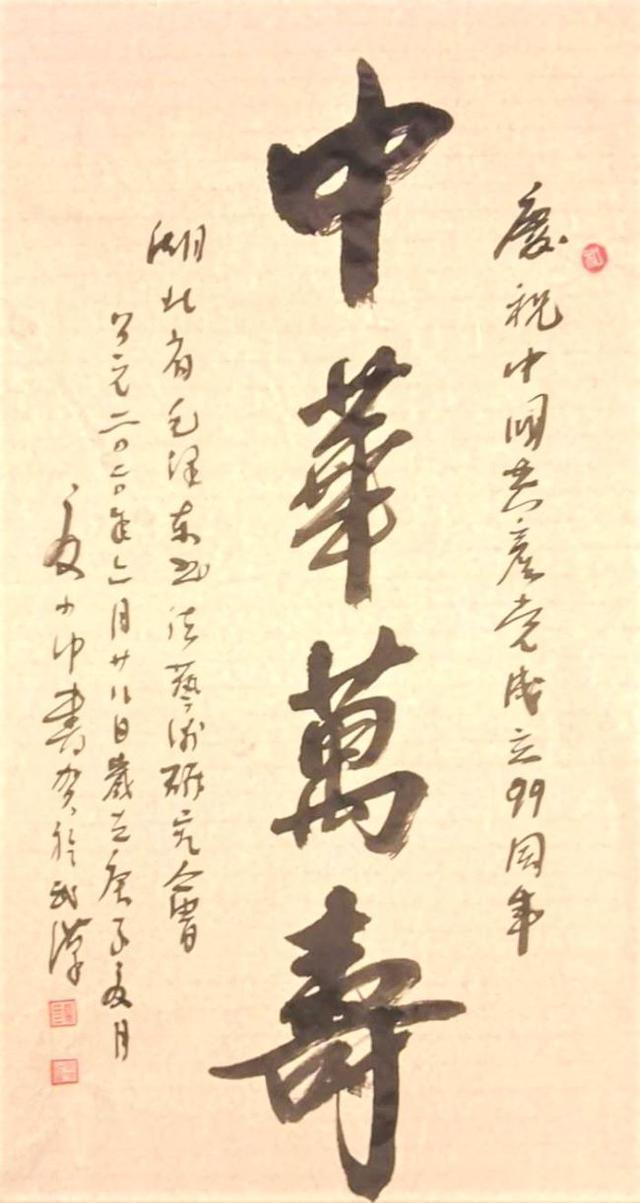 慶祝中國共產党成立99周年
中華萬壽
湖北省毛泽东书法藝術研究會
公元二〇二〇年六月廿八日歲在庚子夏月
夏小中書贺於武漢